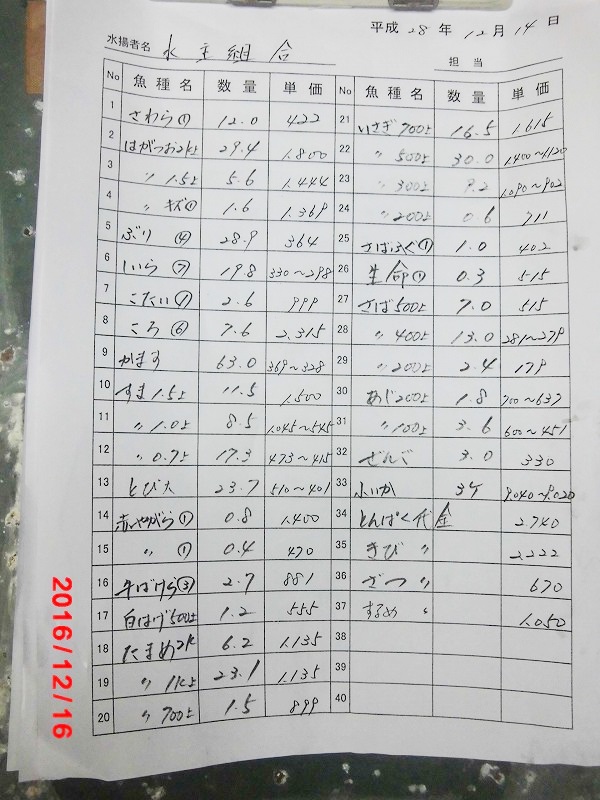 平成 28 年 12 月 14 日
水揚者名 水主組合
担当
No 魚種名 数量 単価
1 さわら① 12.0 422
2 はがつお2kよ 29.4 1.800
3 〃 1.5よ 5.6 1.444
4 〃 キズ① 1.6 1.369
5 ぶり ④ 28.9 364
6 いら ⑦ 19.8 330～298
7 こたい① 2.6 999
8 ころ⑥ 7.6 2.315
9 かます 63.0 369～328
10 すま1.5よ 11.5 1.500
11 〃 1.0よ 8.5 1.045～545
12 〃 0.7よ 17.3 473～415
13 とび大 23.7 510～401
14 赤やがら① 0.8 1.400
15 〃 ① 0.4 470
16 牛ばげら③ 2.7 881
17 白はげ500よ 1.2 555
18 たまめ2k 6.2 1.135
19 〃 1kよ 23.1 1.135
20 〃 700よ 1.5 899
No 魚種名 数量 単価
21 いさぎ700よ 16.5 1.615
22 〃 500よ 30.0 1.400～1.120
23 〃 300よ 9.2 1.090～902
24 〃 200よ 0.6 711
25 さばふぐ① 1.0 402
26 0.3 515
27 さば500よ 7.0 515
28 〃 400よ 13.0 281～279
29 〃 200よ 2.4 179
30 あじ200よ 1.8 700～637
31 〃 100よ 3.6 600～451
32 ぜんご 3.0 330
33 ふいか 34 9.040～9.020
34 とんぱく代金 2.740
35 きび 〃 2.222
36 ざつ 〃 670
37 するめ 〃 1.050
38
39
40
2016/12/16